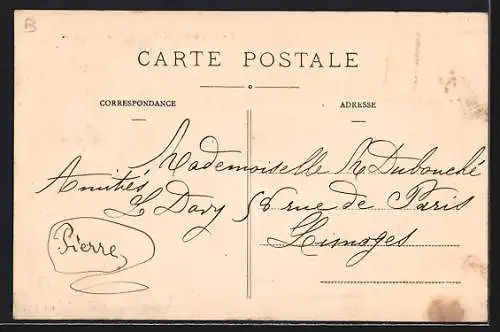 B
CARTE POSTALE
CORRESPONDANCE
ADRESSE
Amitiés
L Davy
Pierre
Mademoiselle N Dubouché
58 rue de Paris
Limoges